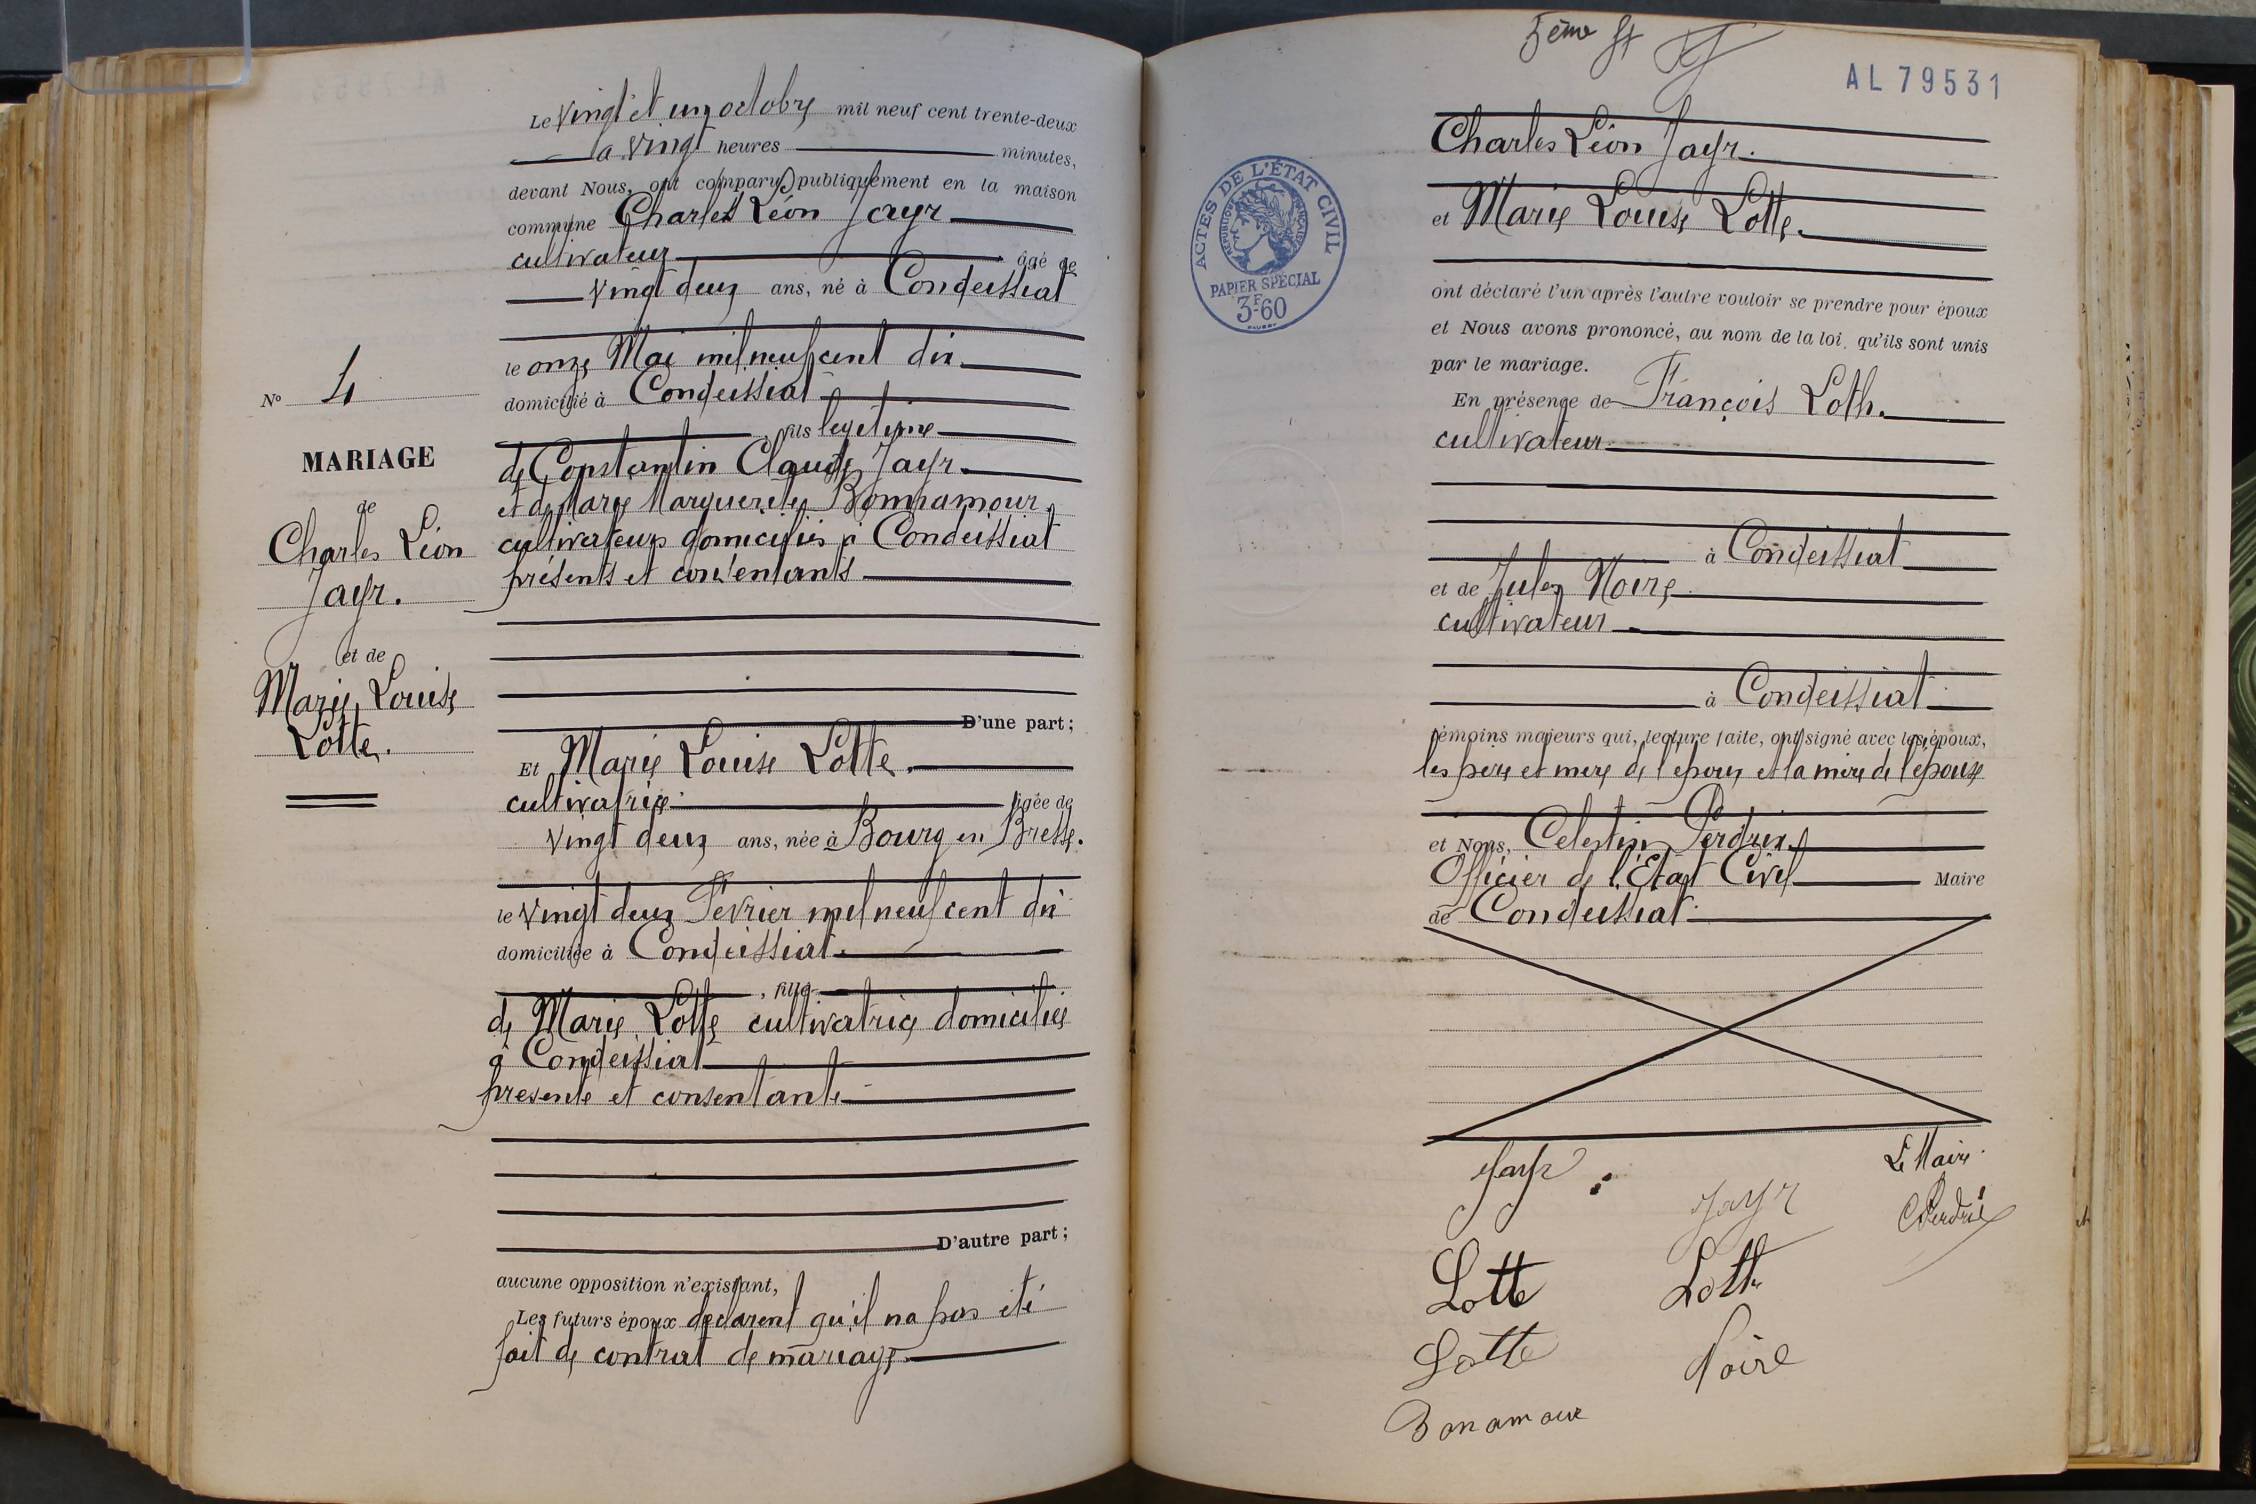 Le vingt et un octobre mil neuf cent trente-deux
à vingt heures minutes,
devant Nous, ont comparu publiquement en la maison
commune Charles Léon Jayr
cultivateur âgé de
vingt deux ans, né à Condeissiat
le onze Mai mil neuf cent dix
domicilié à Condeissiat
, fils legetime
de Constantin Claude Jayr
et de Marie Marguerite Bonnamour
cultivateurs domiciliés à Condeissiat
présents et consentants
D'une part;
Et Marie Louise Lotte.
cultivatrice âgée de
vingt deux ans, née à Bourg en Bresse.
le vingt deux Février mil neuf cent dix
domiciliée à Condeissiat
, fille
de Marie Lotte cultivatrice domiciliée
à Condeissiat
presente et consentante
D'autre part;
aucune opposition n'existant,
Les futurs époux declarent qu'il na pas été
fait de contrat de mariage
No 4
MARIAGE
de
Charles Léon
Jayr.
et de
Marie Louise
Lotte.
5ème
AL 79531
ACTES DE L'ÉTAT CIVIL
RÉPUBLIQUE FRANÇAISE
PAPIER SPÉCIAL
3F60
Charles Léon Jayr.
et Marie Louise Lotte.
ont déclaré l'un après l'autre vouloir se prendre pour époux
et Nous avons prononcé, au nom de la loi, qu'ils sont unis
par le mariage.
En présence de François Loth.
cultivateur
à Condeissiat
et de Jules Noire
cultivateur
à Condeissiat
témoins majeurs qui, lecture faite, ont signé avec les époux,
les père et mère de l'époux et la mère de l'épouse
et Nous, Celestin Perdrix
Officier de l'Etat Civil Maire
de Condeissiat
Jayr
Jayr
Le Maire
CPerdrix
Lotte
Lotte
Lotte
Noire
Bonamour